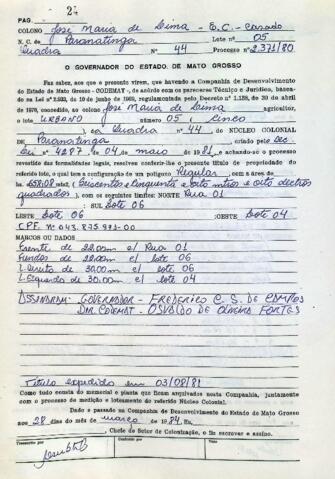 PAG. 2
COLONO José Maria de Lima - B.C. - Casado
N. C. de Paranatinga Lote nº 05
Quadra Nº 44 Processo nº 2.371/80
O GOVERNADOR DO ESTADO DE MATO GROSSO
Faz saber, aos que o presente virem, que havendo a Companhia de Desenvolvimento
do Estado de Mato Grosso - CODEMAT -, de acordo com os pareceres Técnico e Jurídico, baseados
na Lei nº 2.933, de 10 de junho de 1969, regulamentada pelo Decreto nº 1.138, de 30 de abril
de 1970, concedido, ao colono José Maria de Lima agricultor,
o lote URBANO número 05 ( Cinco
), da Quadra nº 44, do NÚCLEO COLONIAL
de Paranatinga, criado pelo Dec.
Lei nº 4287 de 04 de maio de 1982, e achando-se o processo
revestido das formalidades legais, resolveu conferir-lhe o presente título de propriedade do
referido lote, o qual tem a configuração de um polígono Regular, com a área de
658:08 m² (Seiscentos e cinquenta e oito metros e oito decímetros
quadrados), com os seguintes limites: NORTE Rua 01
: SUL Lote 06
LESTE Lote 06 OESTE Lote 04
CPF. Nº 043.875.971-00
MARCOS OU DADOS
Frente de 22.00m c/ Rua 01
Fundos de 22.00m c/ lote 06
L. Direito de 30,00m c/ lote 06
L. Esquerdo de 30.00m c/ lote 04
ASSINARAM: GOVERNADOR - FREDERICO C. S. DE CAMPOS
DIR. CODEMAT - OSVALDO DE OLIVEIRA FORTES
Titulo expedido em 03/08/81
Como tudo consta do memorial e planta que ficam arquivados nesta Companhia, juntamente
com o processo de medição e loteamento do referido Núcleo Colonial.
Dado e passado na Companhia de Desenvolvimento do Estado de Mato Grosso
aos 28 dias do mês de março de 1984. Eu,
, Chefe do Setor de Colonização, o fiz escrever e assino.
Transcrito por Conferido por Visto